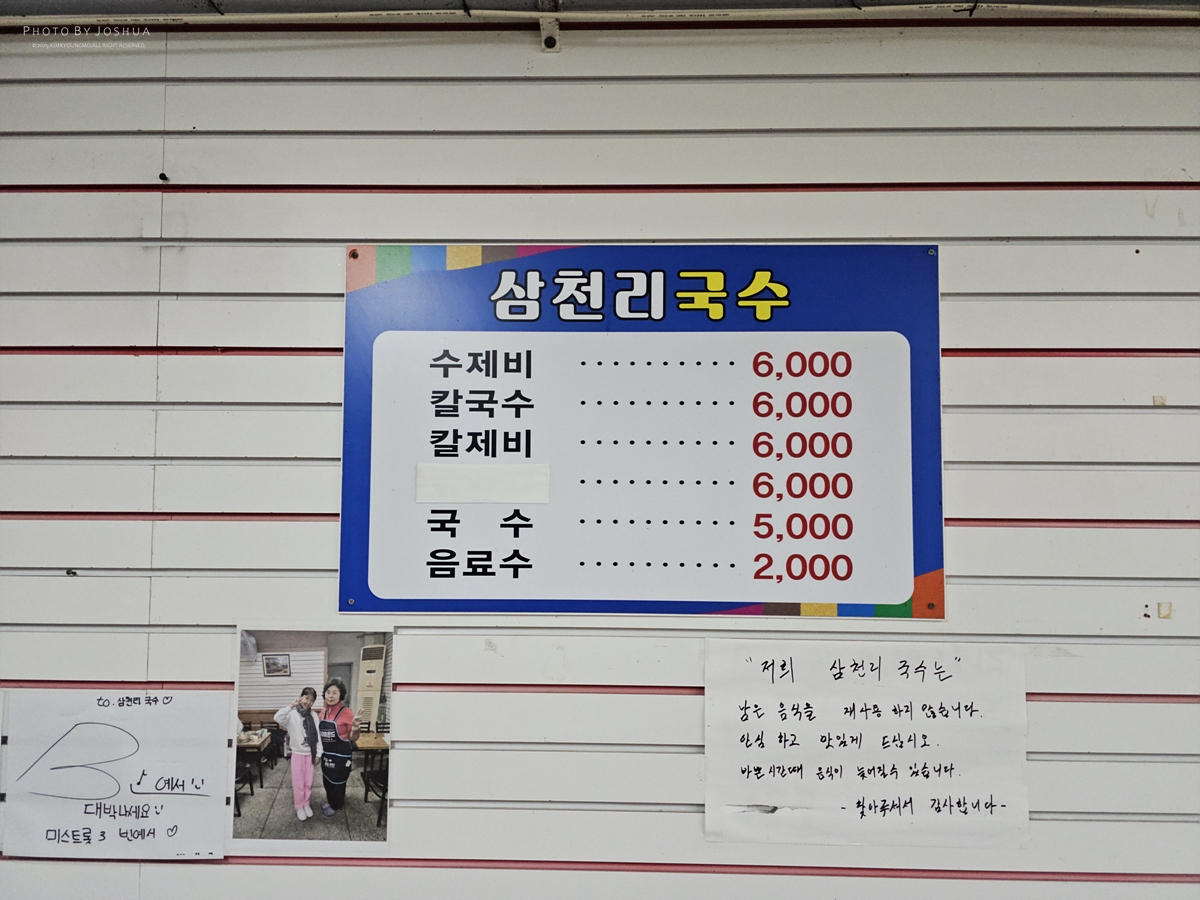 PHOTO BY JOSHUA
©2025 KIMKYOUNGMO. ALL RIGHT RESERVED.
삼천리국수
수제비 ·········· 6,000
칼국수 ·········· 6,000
칼제비 ·········· 6,000
·········· 6,000
국 수 ·········· 5,000
음료수 ·········· 2,000
to. 삼천리 국수♡
예서
대박나세요
미스트롯3 빈예서 ♡
"저희 삼천리 국수는"
남은 음식을 재사용 하지 않습니다.
안심 하고 맛있게 드십시오.
바쁜시간대 음식이 늦어질수 있습니다.
- 찾아주셔서 감사합니다-